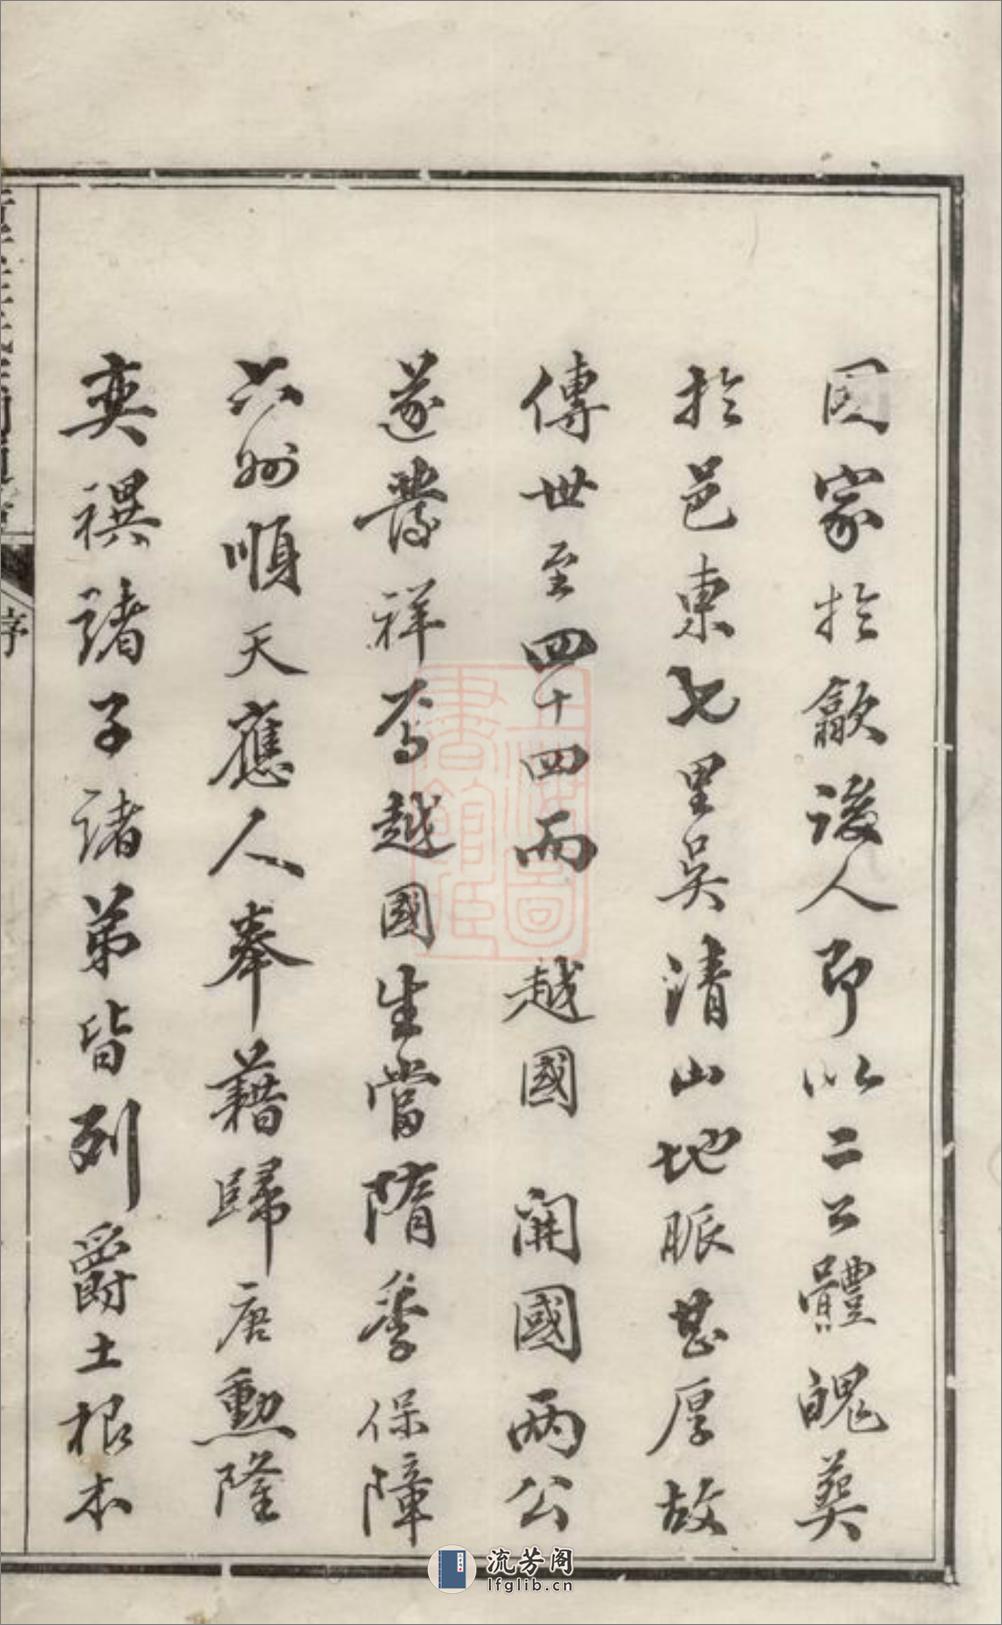 因家於歙後人即以二公體魄葬
於邑東七里吳清山地脈甚厚故
傳世至四十四而越國開國兩公
遂發祥焉越國生當隋季保障
六州順天應人奉藉歸唐勳隆
奕禩諸子諸弟皆列爵土根本
序
上海圖書館藏
流芳阁
lfglib.cn